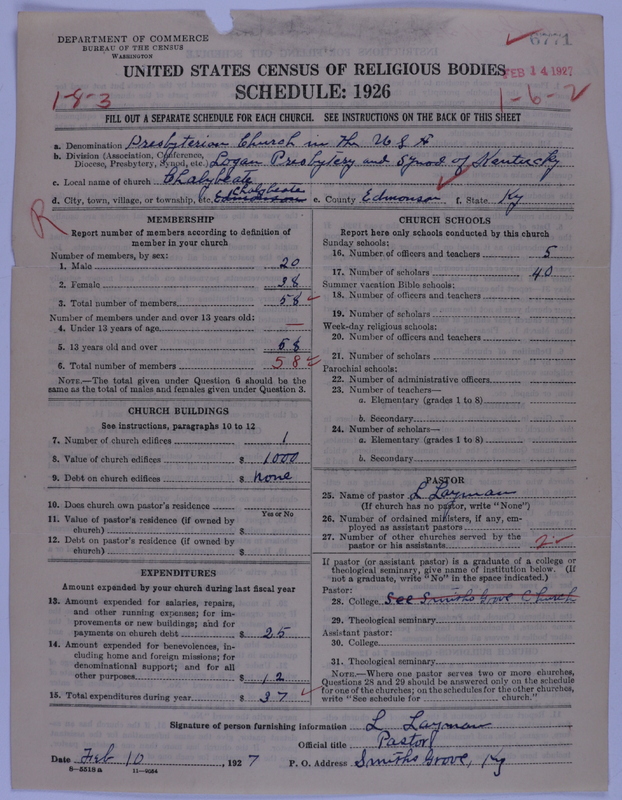 DEPARTMENT OF COMMERCE
BUREAU OF THE CENSUS
WASHINGTON
6771
UNITED STATES CENSUS OF RELIGIOUS BODIES
FEB 14 1927
SCHEDULE: 1926
1-8-3
1-6-2
FILL OUT A SEPARATE SCHEDULE FOR EACH CHURCH. SEE INSTRUCTIONS ON THE BACK OF THIS SHEET
a. Denomination Presbyterian Church in the U S A
b. Division (Association, Conference, Diocese, Presbytery, Synod, etc.) Logan Presbytery and Synod of Kentucky
c. Local name of church Chalybeate
d. City, town, village, or township, etc. Chalybeate e. County Edmonson f. State Ky
R
MEMBERSHIP
Report number of members according to definition of member in your church
Number of members, by sex:
1. Male 20
2. Female 38
3. Total number of members 58
Number of members under and over 13 years old:
4. Under 13 years of age —
5. 13 years old and over 58
6. Total number of members 58
NOTE.—The total given under Question 6 should be the same as the total of males and females given under Question 3.
CHURCH BUILDINGS
See instructions, paragraphs 10 to 12
7. Number of church edifices 1
8. Value of church edifices $ 1000
9. Debt on church edifices $ None
10. Does church own pastor's residence
Yes or No
11. Value of pastor's residence (if owned by church) $
12. Debt on pastor's residence (if owned by church) $
EXPENDITURES
Amount expended by your church during last fiscal year
13. Amount expended for salaries, repairs, and other running expenses; for improvements or new buildings; and for payments on church debt $ 25
14. Amount expended for benevolences, including home and foreign missions; for denominational support; and for all other purposes $ 12
15. Total expenditures during year $ 37
CHURCH SCHOOLS
Report here only schools conducted by this church
Sunday schools:
16. Number of officers and teachers 5
17. Number of scholars 40
Summer vacation Bible schools:
18. Number of officers and teachers
19. Number of scholars
Week-day religious schools:
20. Number of officers and teachers
21. Number of scholars
Parochial schools:
22. Number of administrative officers
23. Number of teachers—
a. Elementary (grades 1 to 8)
b. Secondary
24. Number of scholars—
a. Elementary (grades 1 to 8)
b. Secondary
PASTOR
25. Name of pastor L Layman
(If church has no pastor, write "None")
26. Number of ordained ministers, if any, employed as assistant pastors
27. Number of other churches served by the pastor or his assistants 2
If pastor (or assistant pastor) is a graduate of a college or theological seminary, give name of institution below. (If not a graduate, write "No" in the space indicated.)
Pastor:
28. College See Smiths Grove Church
29. Theological seminary
Assistant pastor:
30. College
31. Theological seminary
NOTE.—Where one pastor serves two or more churches, Questions 28 and 29 should be answered only on the schedule for one of the churches; on the schedules for the other churches, write "See schedule for church."
Signature of person furnishing information L Layman
Official title Pastor
Date Feb 10, 1927 P. O. Address Smiths Grove, Ky
8—5518a 11—9034